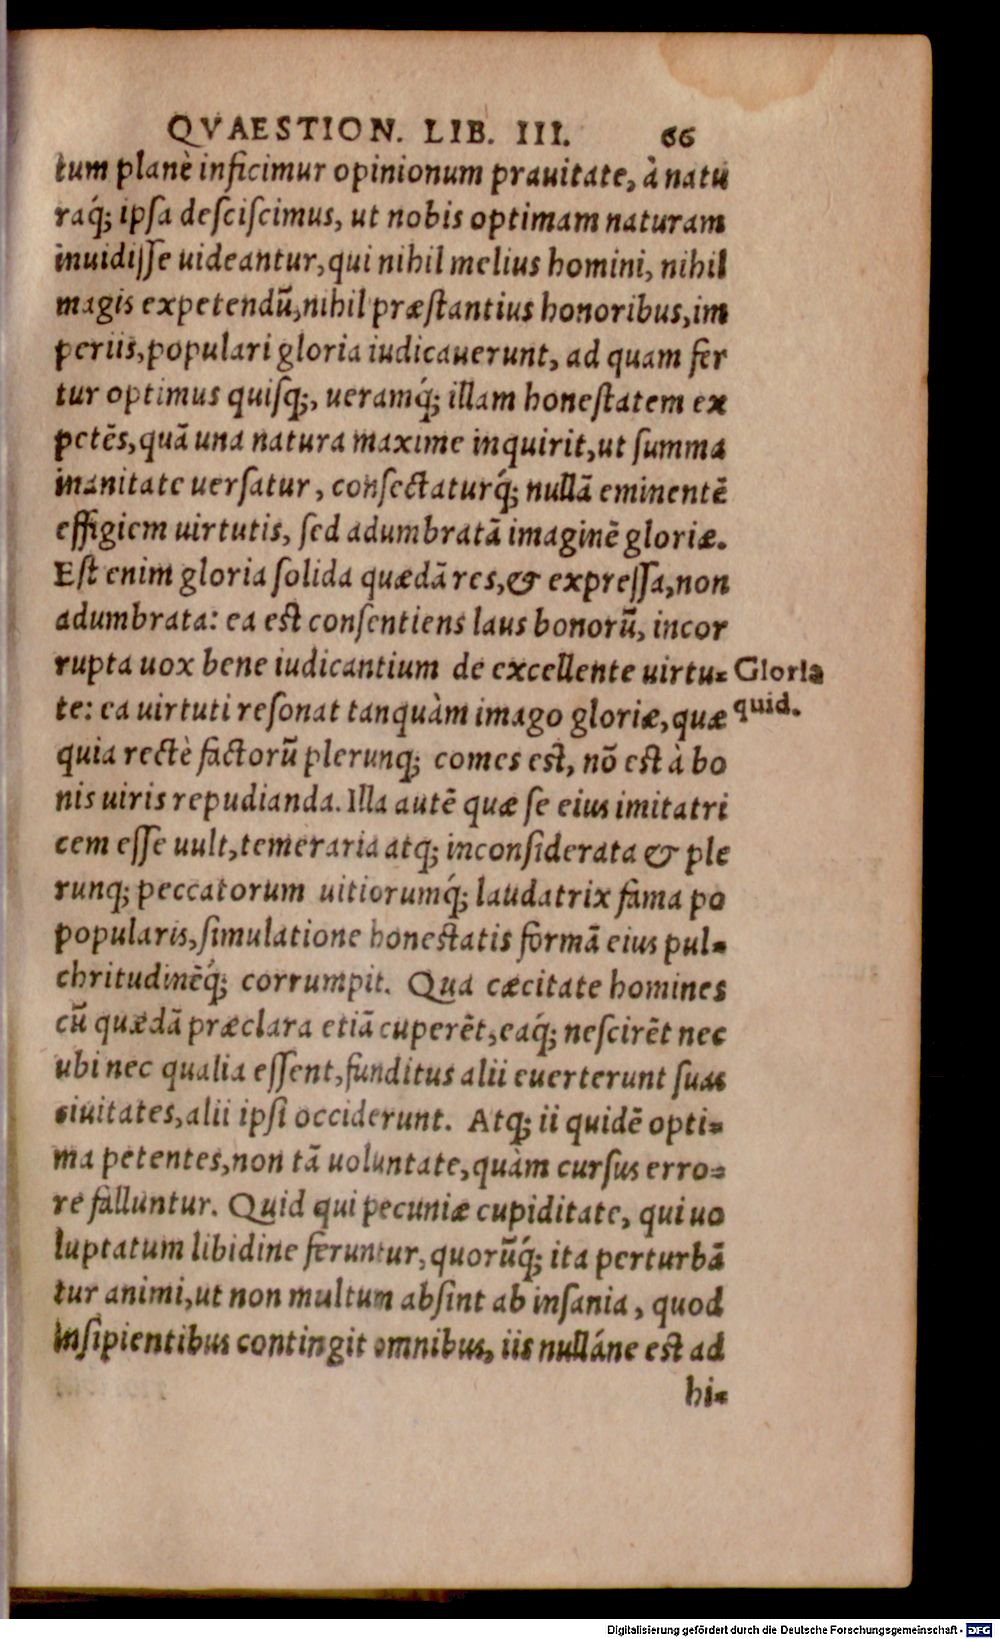 QVAESTION. LIB. III. 66
tum planè inficimur opinionum prauitate, à natu
raq́; ipſa deſciſcimus, ut nobis optimam naturam
inuidiſſe uideantur, qui nihil melius homini, nihil
magis expetendū, nihil præſtantius honoribus, im
periis, populari gloria iudicauerunt, ad quam fer
tur optimus quiſq;, ueramq́; illam honeſtatem ex
petēs, quā una natura maxime inquirit, ut ſumma
inanitate uerſatur, conſectaturq́; nullā eminentē
effigiem uirtutis, ſed adumbratā imaginē gloriæ.
Eſt enim gloria ſolida quædā res, & expreſſa, non
adumbrata: ea eſt conſentiens laus bonorū, incor
rupta uox bene iudicantium de excellente uirtu⸗ Gloria
te: ea uirtuti reſonat tanquàm imago gloriæ, quæ quid.
quia rectè factorū plerunq; comes eſt, nō eſt à bo
nis uiris repudianda. Illa autē quæ ſe eius imitatri
cem eſſe uult, temeraria atq; inconſiderata & ple
runq; peccatorum uitiorumq́; laudatrix fama po
popularis, ſimulatione honeſtatis formā eius pul⸗
chritudinēq́; corrumpit. Qua cæcitate homines
cū quædā præclara etiā cuperēt, eaq́; neſcirēt nec
ubi nec qualia eſſent, funditus alii euerterunt ſuas
ciuitates, alii ipſi occiderunt. Atq; ii quidē opti⸗
ma petentes, non tā uoluntate, quàm curſus erro⸗
re falluntur. Quid qui pecuniæ cupiditate, qui uo
luptatum libidine feruntur, quorūq́; ita perturbā
tur animi, ut non multum abſint ab inſania, quod
inſipientibus contingit omnibus, iis nulláne eſt ad
hi⸗
Digitalisierung gefördert durch die Deutsche Forschungsgemeinschaft - DFG